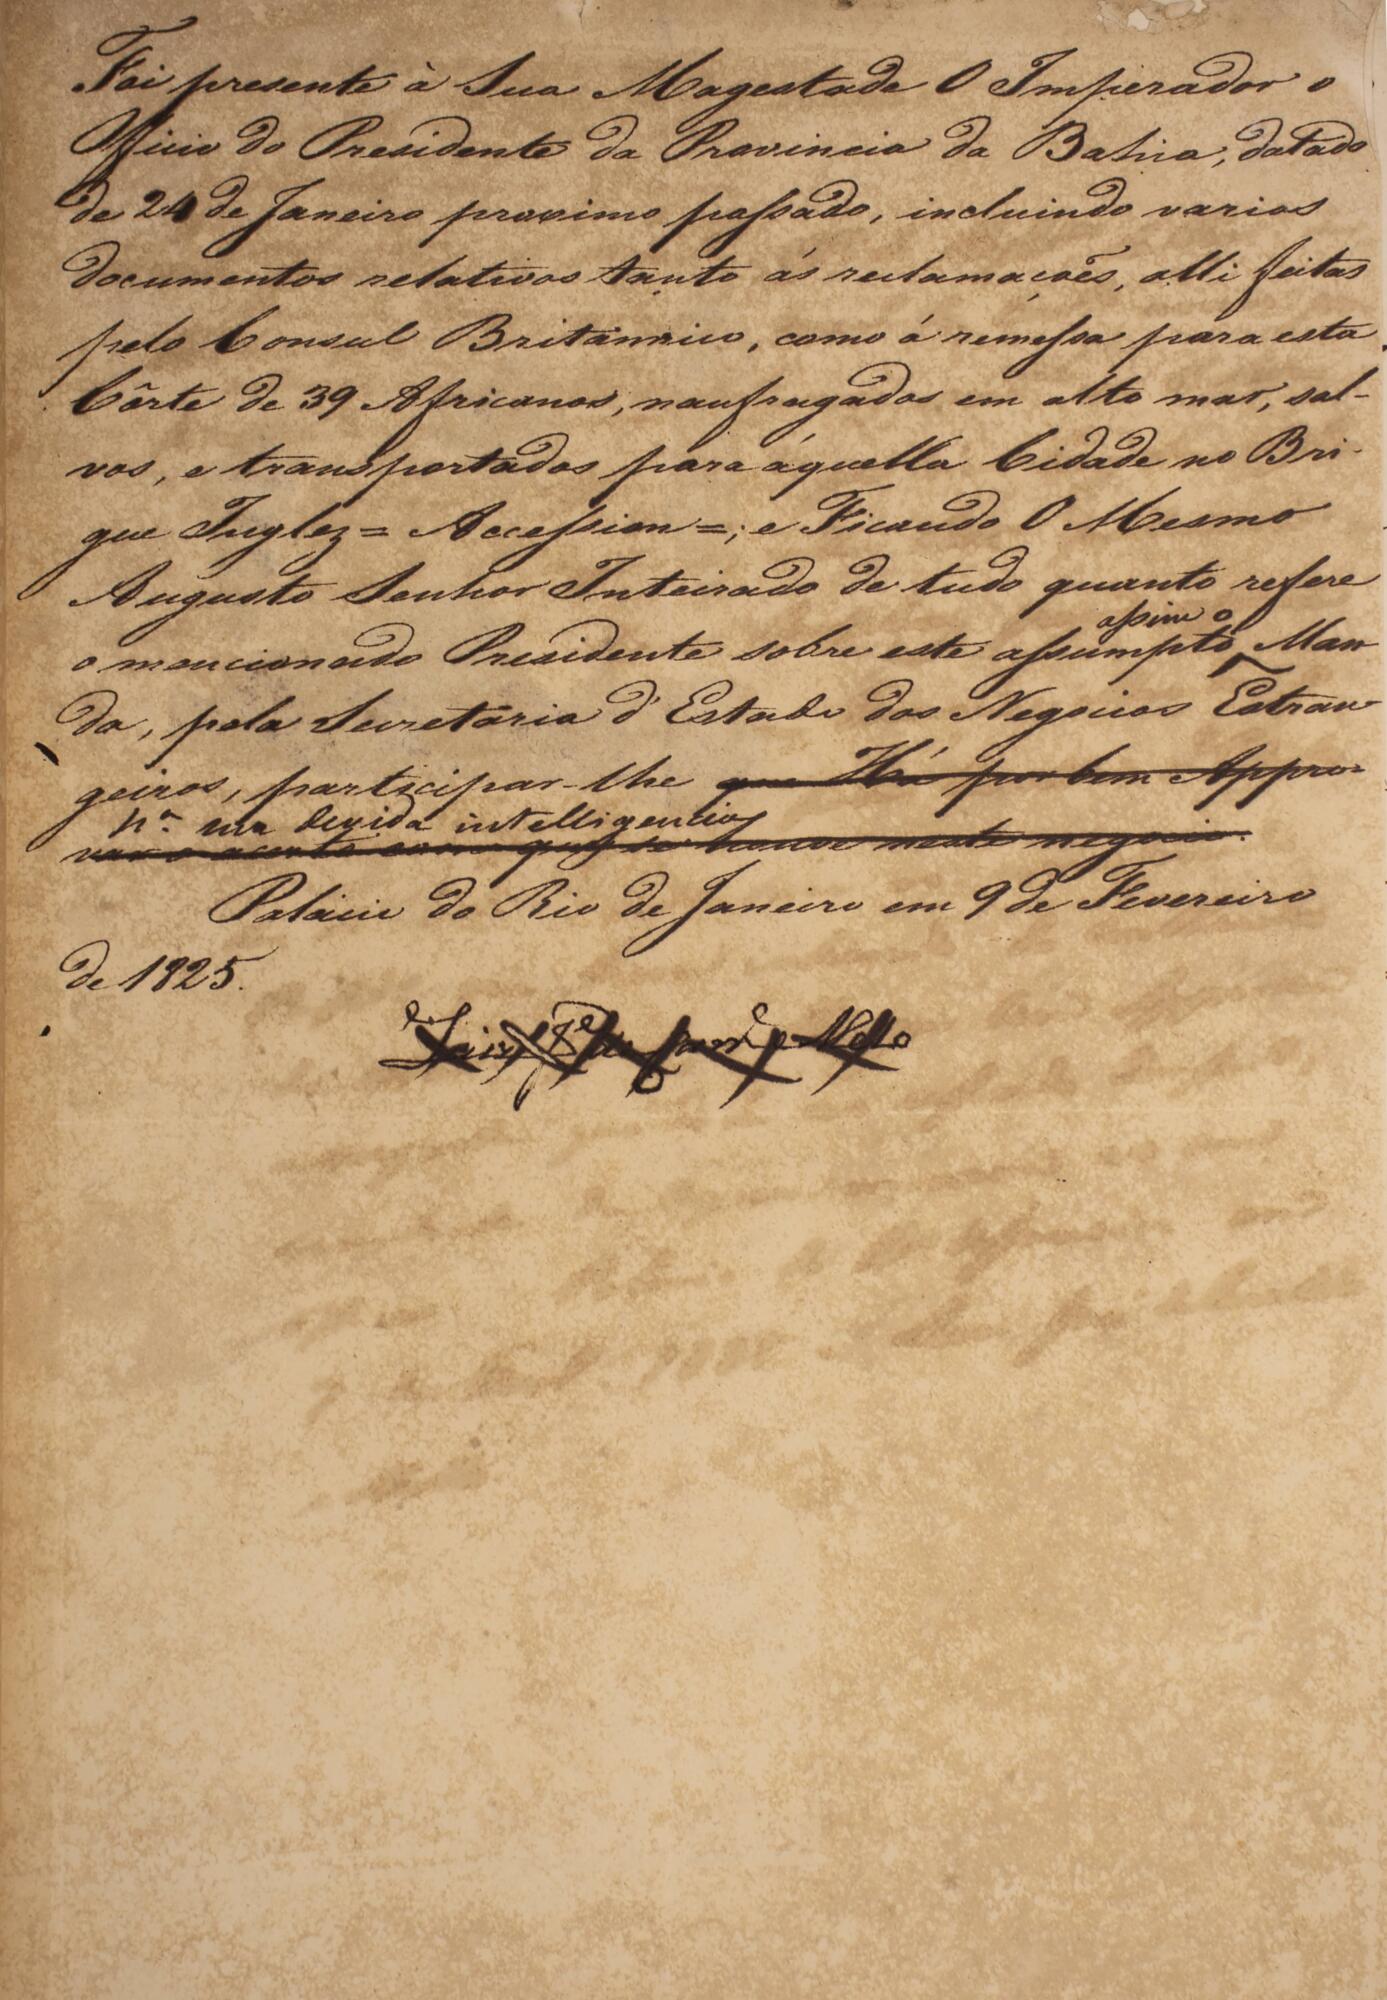 Foi presente à Sua Magestade O Imperador o
Officio do Presidente da Provincia da Bahia, datado
de 24 de Janeiro proximo passado, incluindo varios
documentos relativos tanto ás reclamações, alli feitas
pelo Consul Britannico, como á remessa para esta
Côrte de 39 Africanos, naufragados em alto mar, sal-
vos, e transportados para áquella Cidade no Bri-
gue Inglez = Accession =; e Ficando O Mesmo
Augusto Senhor Inteirado de tudo quanto refere
assim o
o mencionado Presidente sobre este assumpto, Man
da, pela Secretaria d'Estado dos Negocios Estran
geiros, participar-lhe que Há por bem Appro-
pª. sua devida intelligencia
var o acerto com que se houve neste negocio.
Palacio do Rio de Janeiro em 9 de Fevereiro
de 1825.
Luiz Jº de Carvº e Mello